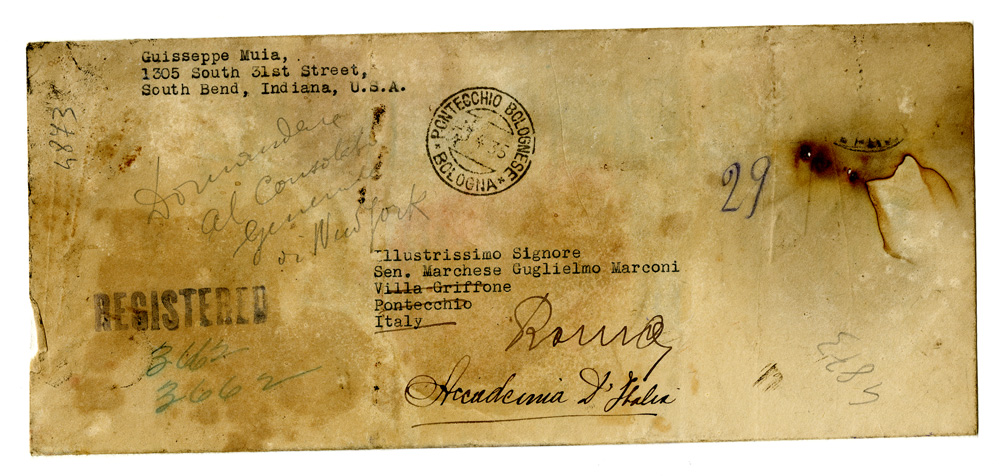 Guisseppe Muia,
1305 South 31st Street,
South Bend, Indiana, U.S.A.
4873
Domandare
al Consolato
Generale
di New York
PONTECCHIO BOLOGNESE
4.35
* BOLOGNA *
29
Illustrissimo Signore
Sen. Marchese Guglielmo Marconi
Villa Griffone
Pontecchio
Italy
Roma
Accademia D'Italia
REGISTERED
3662
3662